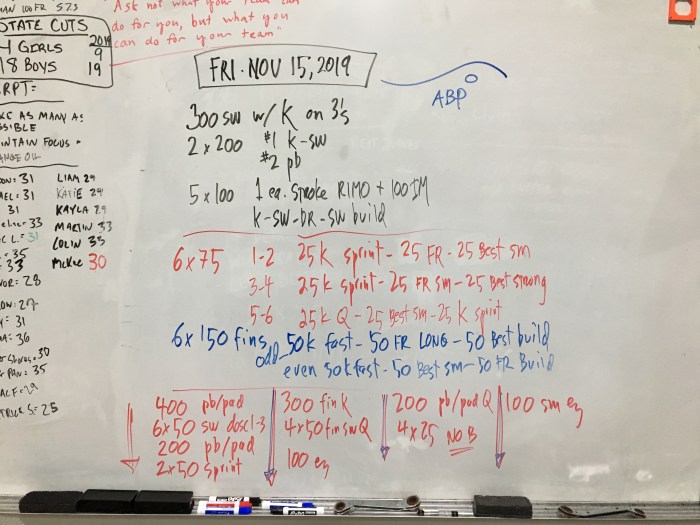 MAN 100 FR 57.3
Ask not what your team can
do for you, but what you
can do for your team"
STATE CUTS
2019
4 GIRLS 9
18 BOYS 19
RPT:
AS MANY AS
POSSIBLE
MAINTAIN FOCUS
CHANGE OIL
31
31
31
33
C L. = 31
35
33
28
27
31
36
30
PAN: 35
29
S = 25
LIAM 29
KATIE 29
KAYLA 29
MARTIN 33
COLIN 35
McKee 30
FRI. NOV 15, 2019
ABP
300 SW w/ K on 3's
2 x 200 #1 K-SW
#2 pb
5 x 100 1 ea. stroke RIMO + 100 IM
K-SW-DR-SW build
6 x 75 1-2 25K sprint - 25 FR - 25 Best sm
3-4 25K sprint - 25 FR sm - 25 Best strong
5-6 25K Q - 25 Best sm - 25 K sprint
6 x 150 fins odd 50K fast - 50 FR LONG - 50 Best build
even 50K fast - 50 Best sm - 50 FR Build
400 pb/pad
6x50 SW desc 1-3
200 pb/pad
2x50 Sprint
300 fin K
4x50 fin SW Q
100 ez
200 pb/pad Q
4 x 25 NO B
100 sm ez